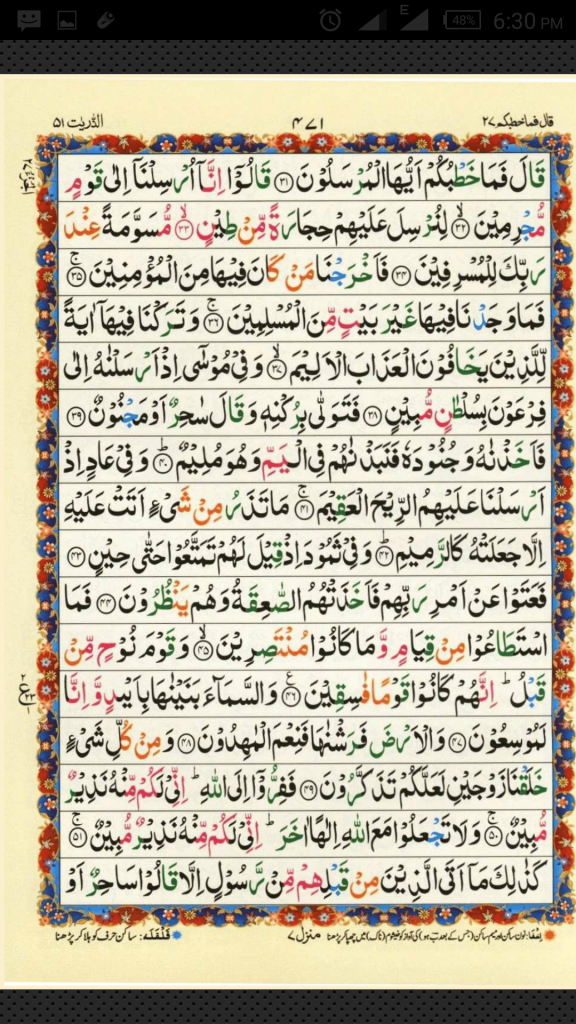 48% 6:30 PM
E
قال فما خطبکم ۲۷
۴۷۱
الذّٰریٰت ۵۱
قَالَ فَمَا خَطْبُكُمْ اَيُّهَا الْمُرْسَلُوْنَ ﴿۳۱﴾ قَالُوْۤا اِنَّاۤ اُرْسِلْنَاۤ اِلٰى قَوْمٍ
مُّجْرِمِيْنَ ﴿۳۲﴾ لِنُرْسِلَ عَلَيْهِمْ حِجَارَةً مِّنْ طِيْنٍ ﴿۳۳﴾ مُّسَوَّمَةً عِنْدَ
رَبِّكَ لِلْمُسْرِفِيْنَ ﴿۳۴﴾ فَاَخْرَجْنَا مَنْ كَانَ فِيْهَا مِنَ الْمُؤْمِنِيْنَ ﴿۳۵﴾
فَمَا وَجَدْنَا فِيْهَا غَيْرَ بَيْتٍ مِّنَ الْمُسْلِمِيْنَ ﴿۳۶﴾ وَتَرَكْنَا فِيْهَاۤ اٰيَةً
لِّلَّذِيْنَ يَخَافُوْنَ الْعَذَابَ الْاَلِيْمَ ﴿۳۷﴾ وَفِيْ مُوْسٰۤى اِذْ اَرْسَلْنٰهُ اِلٰى
فِرْعَوْنَ بِسُلْطٰنٍ مُّبِيْنٍ ﴿۳۸﴾ فَتَوَلّٰى بِرُكْنِهٖ وَقَالَ سٰحِرٌ اَوْ مَجْنُوْنٌ ﴿۳۹﴾
فَاَخَذْنٰهُ وَجُنُوْدَهٗ فَنَبَذْنٰهُمْ فِى الْيَمِّ وَهُوَ مُلِيْمٌ ﴿۴۰﴾ وَفِيْ عَادٍ اِذْ
اَرْسَلْنَا عَلَيْهِمُ الرِّيْحَ الْعَقِيْمَ ﴿۴۱﴾ مَا تَذَرُ مِنْ شَيْءٍ اَتَتْ عَلَيْهِ
اِلَّا جَعَلَتْهُ كَالرَّمِيْمِ ﴿۴۲﴾ وَفِيْ ثَمُوْدَ اِذْ قِيْلَ لَهُمْ تَمَتَّعُوْا حَتّٰى حِيْنٍ ﴿۴۳﴾
فَعَتَوْا عَنْ اَمْرِ رَبِّهِمْ فَاَخَذَتْهُمُ الصّٰعِقَةُ وَهُمْ يَنْظُرُوْنَ ﴿۴۴﴾ فَمَا
اسْتَطَاعُوْا مِنْ قِيَامٍ وَّمَا كَانُوْا مُنْتَصِرِيْنَ ﴿۴۵﴾ وَقَوْمَ نُوْحٍ مِّنْ
قَبْلُ ؕ اِنَّهُمْ كَانُوْا قَوْمًا فٰسِقِيْنَ ﴿۴۶﴾ وَالسَّمَآءَ بَنَيْنٰهَا بِاَيْىدٍ وَّاِنَّا
لَمُوْسِعُوْنَ ﴿۴۷﴾ وَالْاَرْضَ فَرَشْنٰهَا فَنِعْمَ الْمٰهِدُوْنَ ﴿۴۸﴾ وَمِنْ كُلِّ شَيْءٍ
خَلَقْنَا زَوْجَيْنِ لَعَلَّكُمْ تَذَكَّرُوْنَ ﴿۴۹﴾ فَفِرُّوْۤا اِلَى اللّٰهِ ؕ اِنِّيْ لَكُمْ مِّنْهُ نَذِيْرٌ
مُّبِيْنٌ ﴿۵۰﴾ وَلَا تَجْعَلُوْا مَعَ اللّٰهِ اِلٰهًا اٰخَرَ ؕ اِنِّيْ لَكُمْ مِّنْهُ نَذِيْرٌ مُّبِيْنٌ ﴿۵۱﴾
كَذٰلِكَ مَاۤ اَتَى الَّذِيْنَ مِنْ قَبْلِهِمْ مِّنْ رَّسُوْلٍ اِلَّا قَالُوْا سَاحِرٌ اَوْ
اِخفا: نون ساکن اور میم ساکن (جس کے بعد ب ہو) کی آواز کو خیشوم (ناک) میں چھپا کر پڑھنا
منزل ۷
قلقلہ: ساکن حرف کو ہلا کر پڑھنا